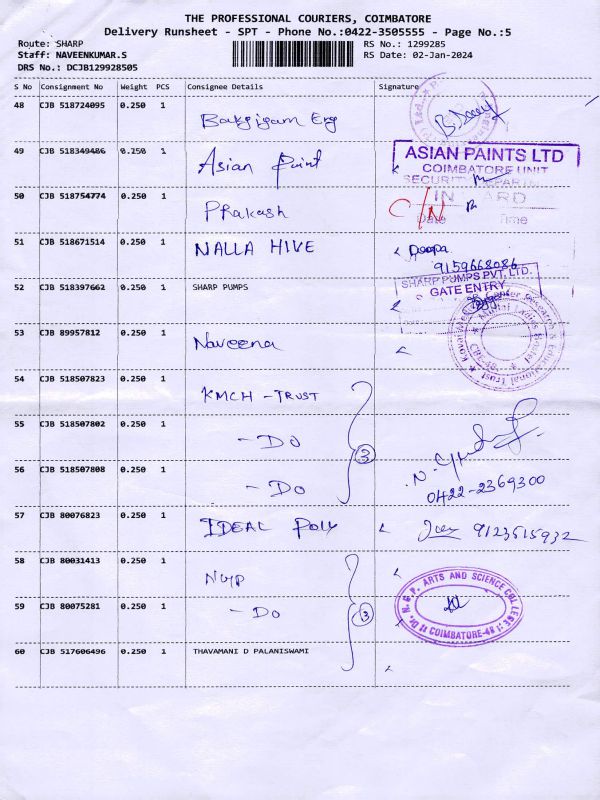 THE PROFESSIONAL COURIERS, COIMBATORE
Delivery Runsheet - SPT - Phone No.:0422-3505555 - Page No.:5
Route: SHARP
RS No.: 1299285
Staff: NAVEENKUMAR.S
RS Date: 02-Jan-2024
DRS No.: DCJB129928505
S No Consignment No Weight PCS Consignee Details Signature
48 CJB 518724095 0.250 1
49 CJB 518349486 0.250 1 Asian Paint
ASIAN PAINTS LTD
COIMBATORE UNIT
SECURITY DEPARTMENT
INWARD
Date Time
50 CJB 518754774 0.250 1 Prakash C/N
51 CJB 518671514 0.250 1 NALLA HIVE Deepa
9159668086
52 CJB 518397662 0.250 1 SHARP PUMPS
SHARP PUMPS PVT. LTD.
GATE ENTRY
53 CJB 89957812 0.250 1 Naveena
Research & Educational Trust
CBE-48.
54 CJB 518507823 0.250 1 KMCH - TRUST
55 CJB 518507802 0.250 1 - DO
3
56 CJB 518507808 0.250 1 - DO
0422-2369300
57 CJB 80076823 0.250 1 IDEAL POLY 9123515932
58 CJB 80031413 0.250 1 NGP
59 CJB 80075281 0.250 1 - DO
3
Dr. N.G.P. ARTS AND SCIENCE COLLEGE
COIMBATORE-48
60 CJB 517606496 0.250 1 THAVAMANI D PALANISWAMI